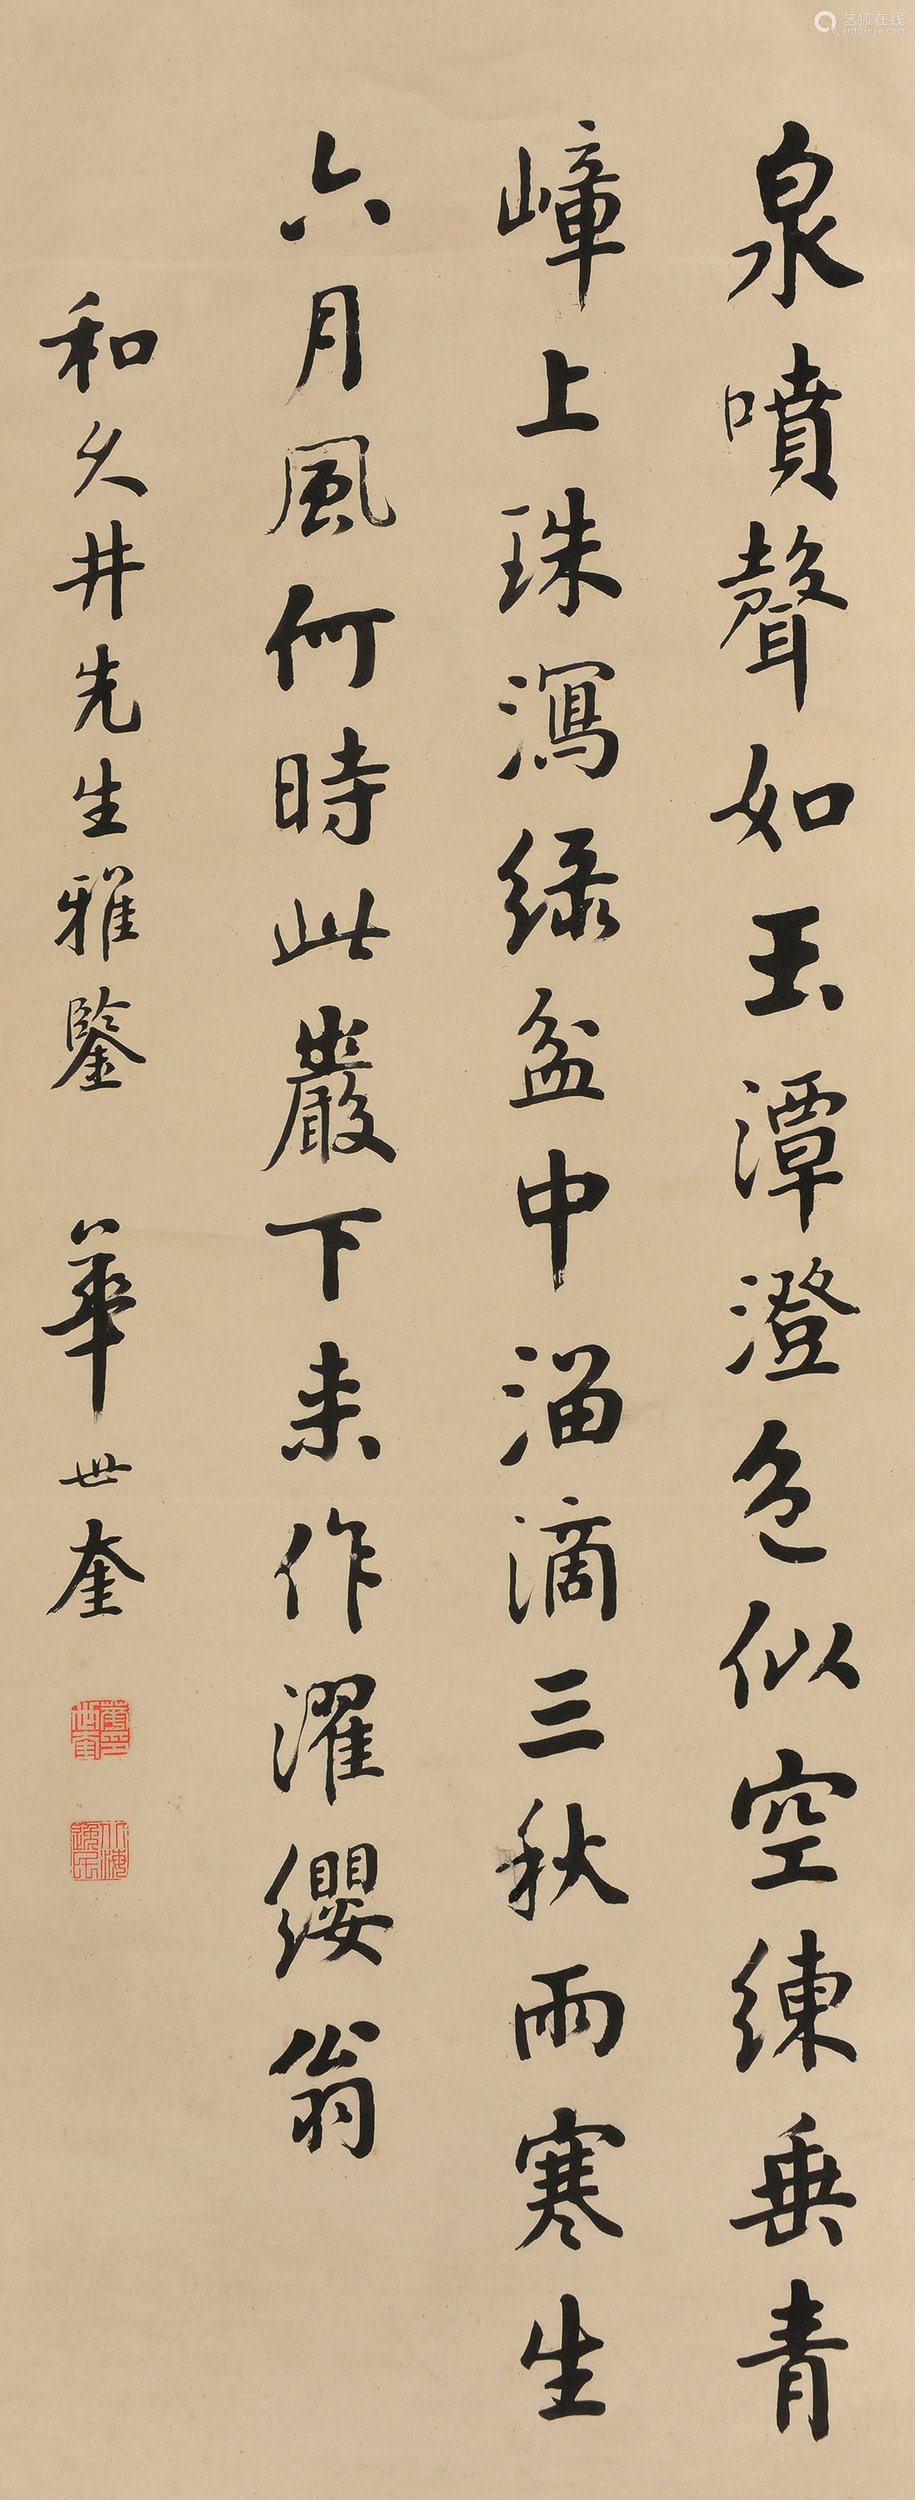 泉噴聲如玉潭澄色似空練垂青
嶂上珠瀉綠盆中溜滴三秋雨寒生
六月風何時此巖下来作濯纓翁
和久井先生雅鑒 華世奎
艺狐在线
artfoxlive.com